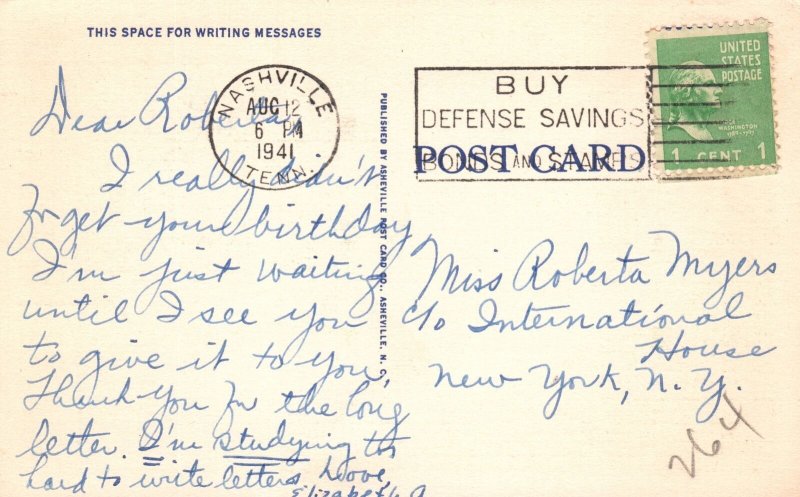 THIS SPACE FOR WRITING MESSAGES
Dear Roberta,
I really didn't
forget your birthday
I'm just waiting
until I see you
to give it to you.
Thank you for the long
letter. I'm studying too
hard to write letters, Love,
Elizabeth
NASHVILLE
AUG 12
6 PM
1941
TENN.
PUBLISHED BY ASHEVILLE POST CARD CO., ASHEVILLE, N. C.
BUY
DEFENSE SAVINGS
BONDS AND STAMPS
POST CARD
UNITED
STATES
POSTAGE
WASHINGTON
1 CENT 1
Miss Roberta Myers
c/o International
House
New York, N. Y.
264